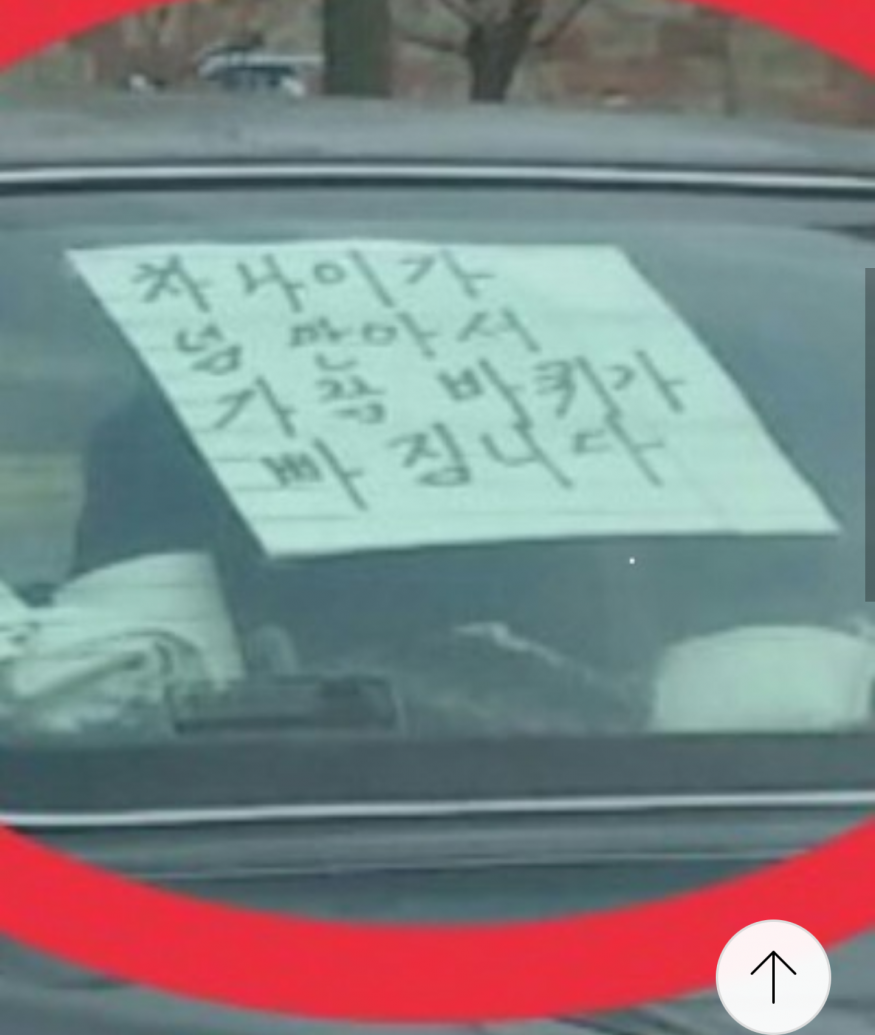 차 나이가
넘 많아서
가끔 바퀴가
빠집니다